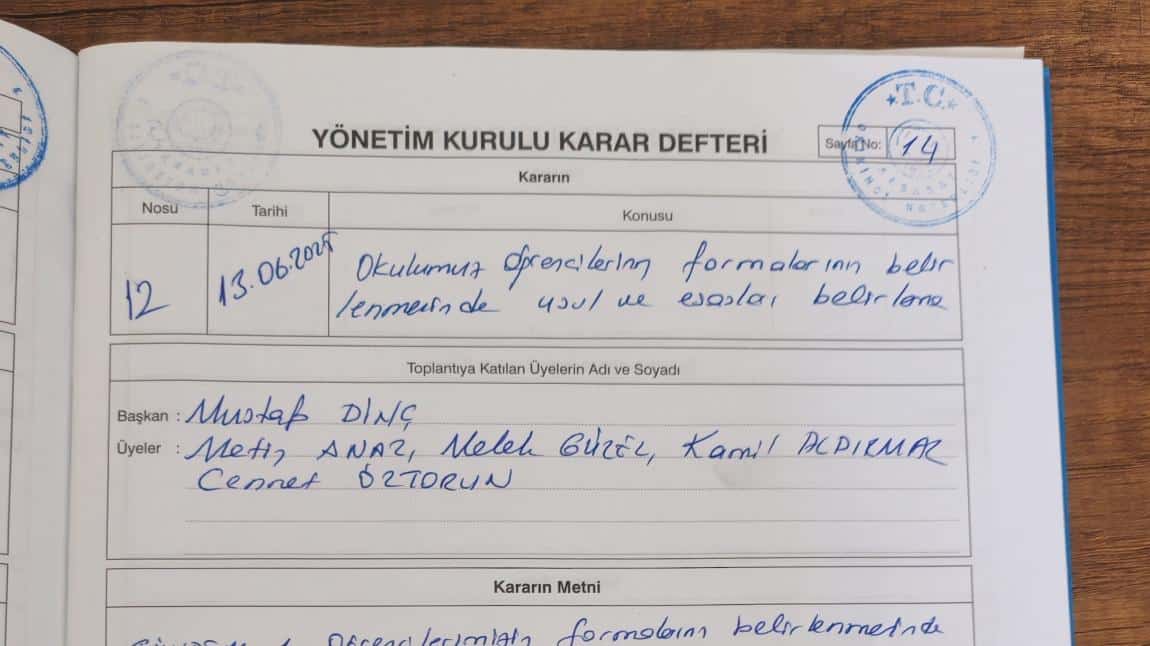 YÖNETİM KURULU KARAR DEFTERİ
Sayfa No: 14
T.C.
Kararın
Nosu Tarihi Konusu
12 13.06.2025 Okulumuz öğrencilerinn formalarının belir
lenmesinde usul ve esaslar belirleme
Toplantıya Katılan Üyelerin Adı ve Soyadı
Başkan : Mustafa DİNÇ
Üyeler : Metin ANAZ, Melek GÜZEL, Kamil ALDIRMAZ
Cennet ÖZTORUN
Kararın Metni
öğrencilerimizin formaların belirlenmesinde